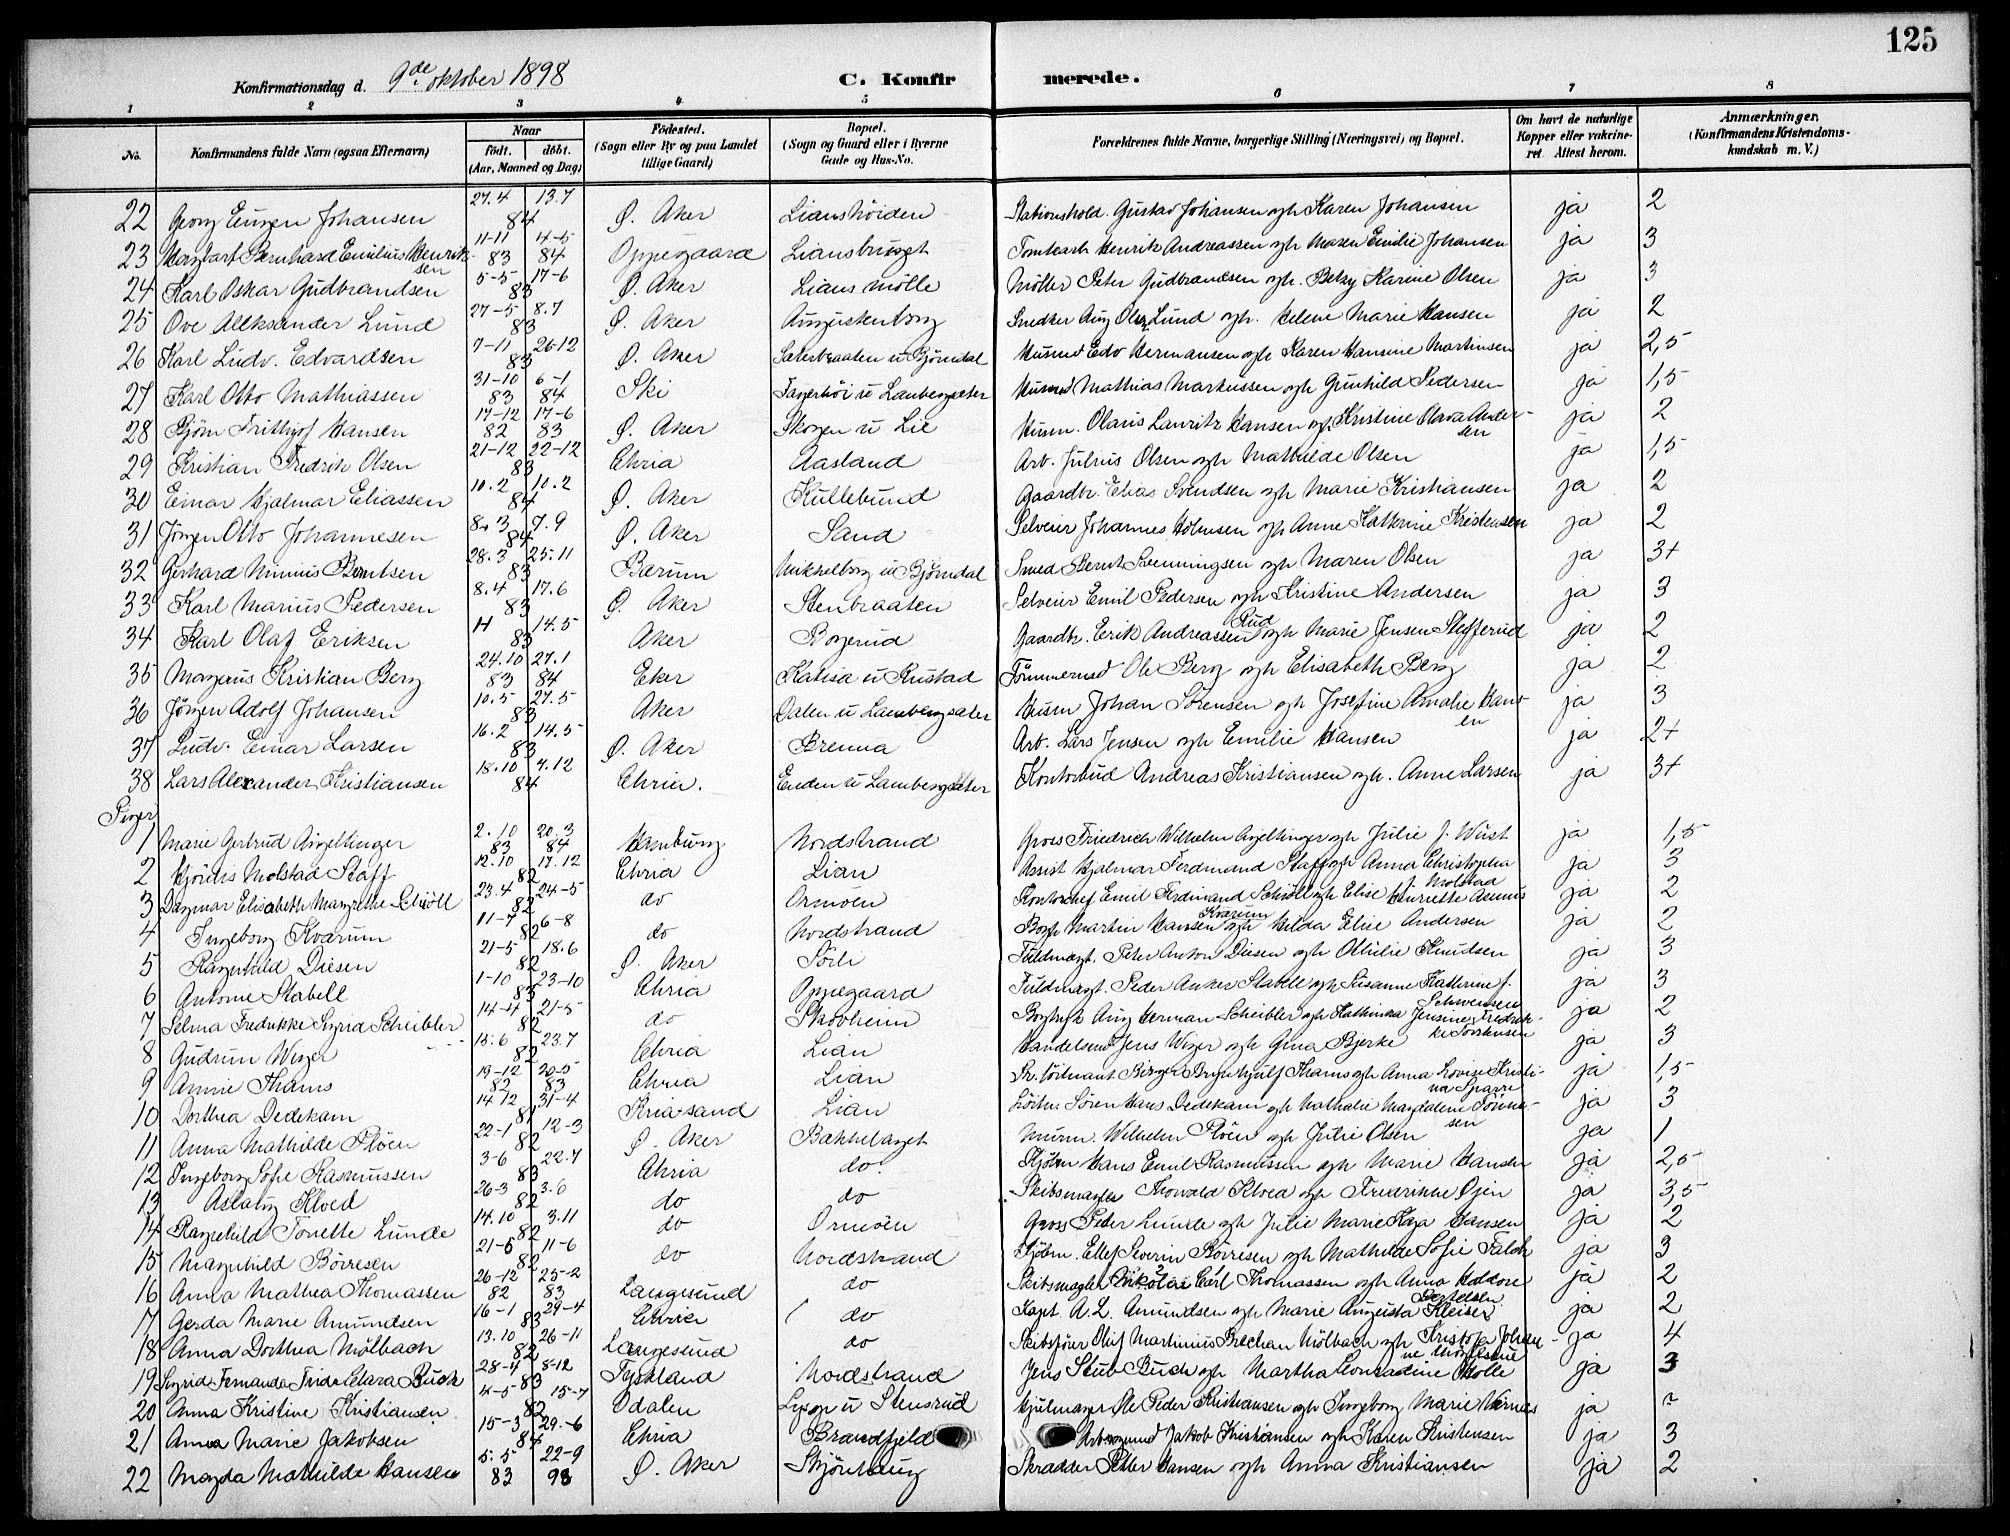 125
Konfirmationsdag d. 9de oktober 1898 C. Konfirmerede.
1 2 3 4 5 6 7 8
No. Konfirmandens fulde Navn (ogsaa Efternavn) Naar født. døbt. (Aar, Maaned og Dag) Fødested. (Sogn eller By og paa Landet tillige Gaard) Bopæl. (Sogn og Gaard eller i Byerne Gade og Hus-No. Forældrenes fulde Navne, borgerlige Stilling (Næringsvei) og Bopæl. Om havt de naturlige Kopper eller vakcineret. Attest herom. Anmærkninger. (Konfirmandens Kristendomskundskab m. V.)
22 Georg Eugen Johansen 27.4 13.7 84 Ø. Aker Lianshöiden Stationshold. Gustav Johansen ogh Karen Johansen ja 2
23 Bernhard Emilius Henriksen 11-11 83 4-5 84 Oppegaard Liansbruget Henrik Andreassen ogh Maren Emilie Johansen ja 3
24 Karl Oskar Gudbrandsen 5-5 17-6 83 Ø. Aker Lians mölle Möller Peter Gudbrandsen ogh. Betzy Karine Olsen ja 3
25 Ove Alleksander Lund 27-5 8.7 83 Ø. Aker Augustenborg Snedker Aug Olsen Lund ogh. Helene Marie Hansen ja 2
26 Karl Ludv. Edvardsen 7-11 26-12 83 Ø. Aker Sæterbraaten u Björndal Husmd Edv Hermansen ogh Karen Hansine Martinsen ja 2,5
27 Karl Otto Mathiassen 31-10 83 6-1 84 Ski Fagerhöi u Lambergsæter Husmd Mathias Markussen ogh Gunhild Pedersen ja 1,5
28 Björn Frithjof Hansen 17-12 82 17-6 83 Ø. Aker Skogen u Lie Husm. Olaus Lauritz Hansen ogh Kristine Olava Andersen ja 2
29 Kristian Fredrik Olsen 21-12 22-12 83 Chria Aasland Arb. Julius Olsen ogh Mathilde Olsen ja 1,5
30 Einar Hjalmar Eliassen 10.2 10.2 84 Ø. Aker Kullebund Gaardbr. Elias Svendsen ogh Marie Kristiansen ja 2
31 Jörgen Otto Johannesen 8.3 7.9 84 Ø. Aker Sand Selveier Johannes Holmsen ogh Anne Kathrine Kristensen ja 2
32 Gerhard Minius Berntsen 28.3 25.11 83 Bærum Mikkelborg u Björndal Smed Bernt Svenningsen ogh Maren Olsen ja 3+
33 Karl Marius Pedersen 8.4 17.6 83 Ø. Aker Stenbraaten Selveier Emil Pedersen ogh Kristine Andersen ja 3
34 Karl Olaf Eriksen 14.5 83 Aker Bogerud Gaardbr. Erik Andreassen Rud ogh Marie Jensen Slefferud ja 2
35 Magnus Kristian Berg 24.10 83 27.1 84 Eker Katisa u Rustad Tömmermd Ole Berg ogh Elisabeth Berg ja 2
36 Jörgen Adolf Johansen 10.5 27.5 83 Aker Dalen u Lambergsæter Husm Johan Sörensen ogh Josefine Amalie Hansen ja 3
37 Ludv. Einar Larsen 16.2 14.5 83 Ø. Aker Brenna Arb. Lars Jensen ogh Emilie Hansen ja 2+
38 Lars Alexander Kristiansen 18.10 7.12 84 Chria. Enden u Lambergsæter Kontorbud Andreas Kristiansen ogh. Anne Larsen ja 3+
Piger
1 Marie Gertrud Angeltinger 2.10 83 20.3 84 Hamburg Nordstrand Gross Friedrich Wilhelm Angeltinger ogh Julie J. Wüst ja 1,5
2 Hjördis Molstad Staff 12.10 17.12 82 Chria Lian Assist Hjalmar Ferdinand Staff ogh Anna Christopha f. Molstad ja 3
3 Dagmar Elisabeth Margrethe Schiöll 23.4 24-5 82 do Ormöen Kontorchef Emil Ferdinand Schiöll ogh Elise Henriette Asmus ja 2
4 Ingeborg Kvarum 11-7 6-8 82 do Nordstrand Bogh Martin Hansen Kvarum ogh Hilda Elise Andersen ja 2
5 Ragnhild Diesen 21-5 18.6 82 Ø. Aker Sörli Fuldmægt. Peter Anton Diesen ogh Ottilie Knudsen ja 3
6 Antonie Stabell 1-10 23-10 83 Chria Oppegaard Fuldmægt. Peder Anker Stabell ogh Susanne Kathrine f. Schwensen ja 3
7 Selma Fredrikke Sigrid Scheibler 14-4 21-5 82 do Skovheim Bogtryk Aug Herman Scheibler ogh Kathinka Jensine Fredrikke Torstensen ja 2
8 Gudrun Weger 15.6 23.7 82 Chria Lian Handelsmd Jens Weger ogh Gina Bjerke ja 3
9 Annie Thams 19-12 82 20-5 83 Chria Lian Pr. löitnant Birger Brynhjulf Thams ogh Anna Lovise Kristina Sparre ja 1,5
10 Dorthea Dedekam 14 12 31-4 81 Kria-sand Lian Löitn. Sören Hans Dedekam ogh Nathalie Magdalene Tönnesen ja 3
11 Anna Mathilde Plöen 22-1 12-3 82 Ø. Aker Bækkelaget Murm. Wilhelm Plöen ogh Julie Olsen ja 1
12 Ingeborg Sofie Rasmussen 3-6 22.7 83 Chria do. Kjöbm Hans Emil Rasmussen ogh Marie Hansen ja 2,5
13 Aslaug Kloed 26-3 3.6 82 do do Skibsmægler Thorvald Kloed ogh Fredrikke Öjen ja 3,5
14 Ragnhild Tonette Lunde 14.10 3.11 82 do Ormöen Gross Peder Lunde ogh Julie Marie Kaja Hansen ja 2
15 Magnhild Börresen 21-5 11-6 82 do Nordstrand Kjöbm. Ellef Severin Börresen ogh Mathilde Sofie Falch ja 3
16 Anna Mathea Thomassen 26-12 82 25-2 83 Langesund do Skibsmægler Nikolai Carl Thomassen ogh Anna ja 2
17 Gerda Marie Amundsen 16-1 29-4 83 Chria do Kapt A. L. Amundsen ogh Marie Augusta Kleiser ja 2
18 Anna Dorthea Mölbach 13.10 26-11 82 Langesund do Skibsförer Oluf Martinius Brechan Mölbach ogh ja 4
19 Sigrid Fernanda Frida Clara Buch 28-4 8-12 83 Tyskland Nordstrand Jens Stub Buch ogh Martha Conradine Holle ja 3
20 Anna Kristine Kristiansen 4-5 15-7 82 Odalen u Stensrud Hjulmager Ole Peder Kristiansen ogh Ingeborg Marie ja 2
21 Anna Marie Jakobsen 15-3 29.-6 84 Chria Brandfjeld Jakob Kristiansen ogh Karen Kristensen ja 3
22 Magda Mathilde Hansen 5.5 83 22-9 93 Ø. Aker Skjönhaug Skrædder Petter Hansen ogh Anna Kristiansen ja 2